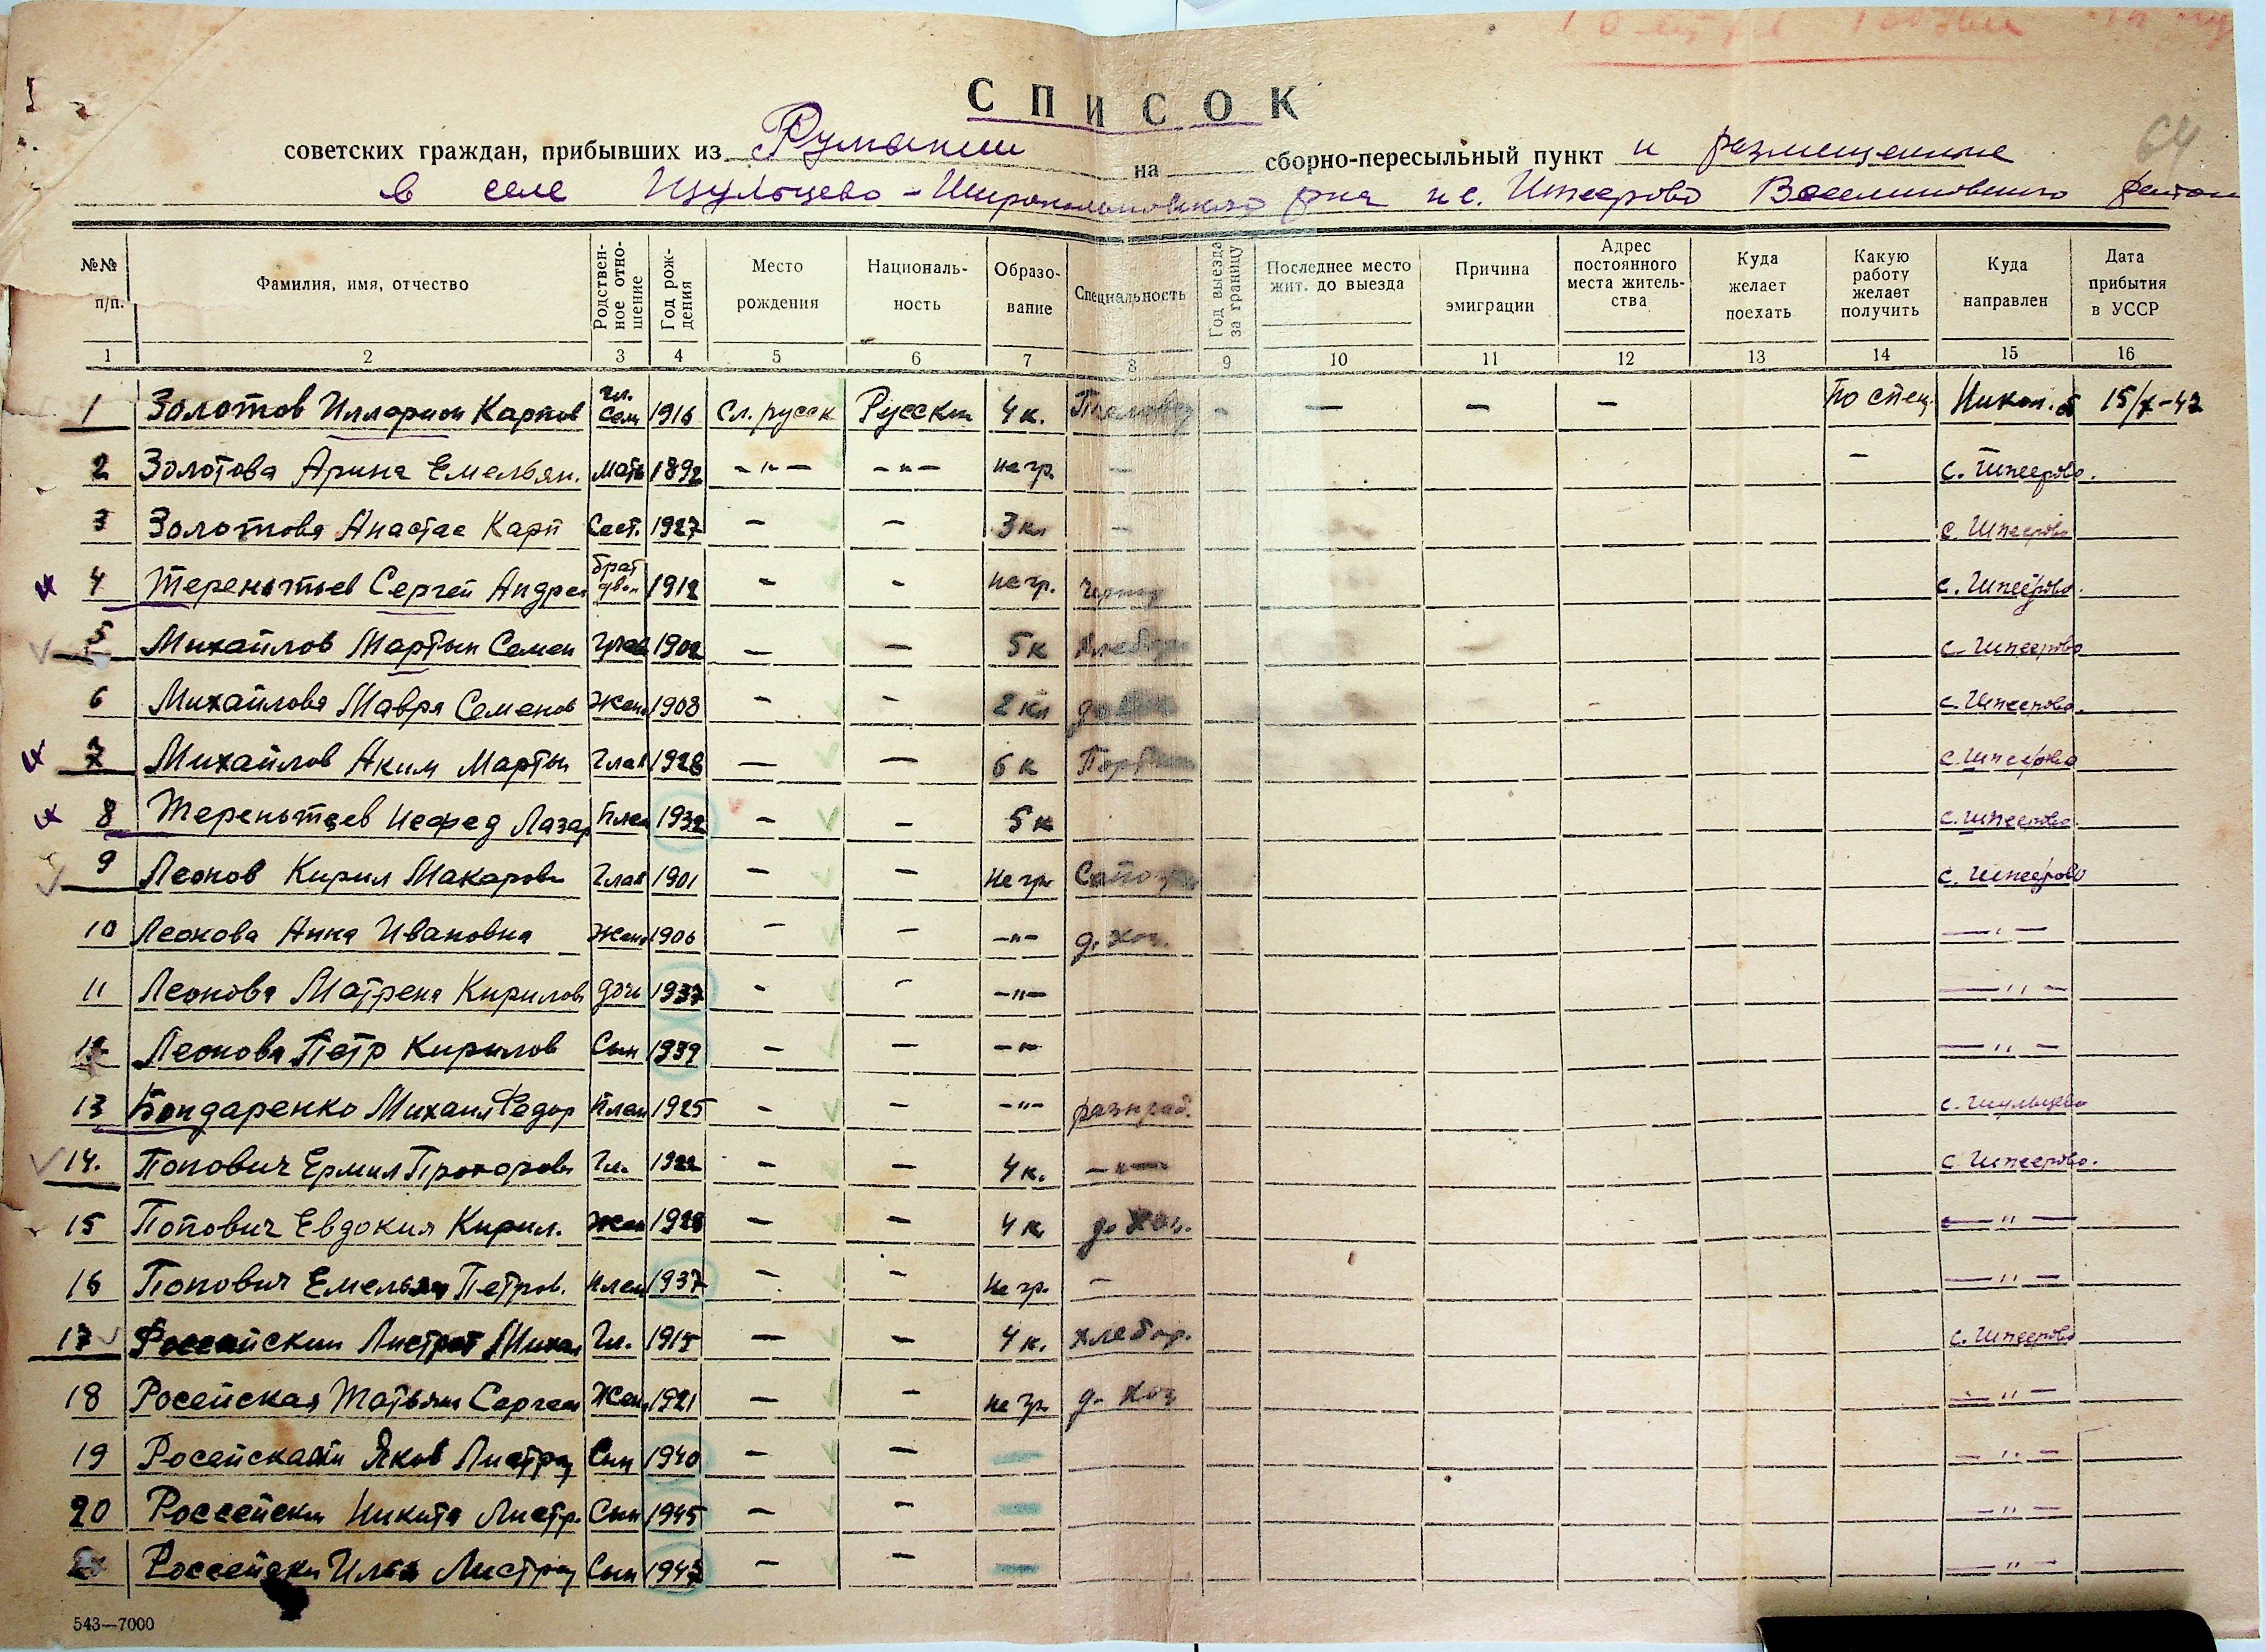 64
СПИСОК
советских граждан, прибывших из Румынии на сборно-пересыльный пункт и размещенные
в селе Шульцево - Широколановского р-на и с. Шпеерово Веселиновского района
№№ п/п. Фамилия, имя, отчество Родствен-ное отно-шение Год рож-дения Место рождения Националь-ность Образо-вание Специальность Год выезда за границу Последнее место жит. до выезда Причина эмиграции Адрес постоянного места житель-ства Куда желает поехать Какую работу желает получить Куда направлен Дата прибытия в УССР
1 2 3 4 5 6 7 8 9 10 11 12 13 14 15 16
1 Золотов Илларион Карпов Гл. сем 1916 Сл. русск Русский 4 к. - - - - По спец. 15/X-47
2 Золотова Арина Емельян. мать 1892 -"- -"- негр. - - с. Шпеерово.
3 Золотова Анастас Карп Сест. 1927 - - 3 кл - с Шпеерово
4 Терентьев Сергей Андре брат двою 1912 - - негр. с. Шпеерово.
5 Михайлов Мартын Семен Глав 1902 - - 5 к Хлебор с. Шпеерово
6 Михайлова Мавра Семенов Жена 1908 - - 2 кл с. Шпеерово.
7 Михайлов Аким Марты Глав 1928 - - 6 к с. Шпеерово
8 Терентьев Нефед Лазар Плем 1932 - - 5 к с. Шпеерово.
9 Леонов Кирил Макаров Глав 1901 - - Негр с. Шпеерово
10 Леонова Анна Ивановна Жена 1906 - - -"- д. хоз. -"-
11 Леонова Матрена Кирилов дочь 1937 - - -"- -"-
12 Леонова Петр Кирилов Сын 1939 - - -"- -"-
13 Бондаренко Михаил Федор Плем 1925 - - -"- разнраб. с. Шульцево
14. Попович Ермил Прохоров Гл. 1922 - - 4 к. -"- с Шпеерово.
15 Попович Евдокия Кирил. Жен 1928 - - 4 к д. хоз. -"-
16 Попович Емельян Петров. Плем 1937 - - Негр. - -"-
17 Российский Листрат Миха Гл. 1915 - - 4 к. хлебор. с. Шпеерово
18 Росейская Татьяна Сергее Жен 1921 - - негр д. хоз -"-
19 Яков Листра Сын 1940 - - -"-
20 Россейски Никита Листр. Сын 1945 - - -"-
Россейски Илья Листра Сын 1947 - - -"-
543—7000